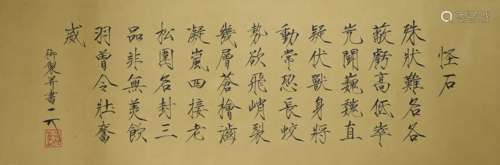 怪石
殊狀難名各
蔽虧高低峯
闘巍巍直
疑伏獸身將
動常恐長蛟
勢欲飛峭裂
幾層蒼檜
凝嵐四接老
松圍名封三
品非無美飲
羽曾令壯奮
威
御製并書